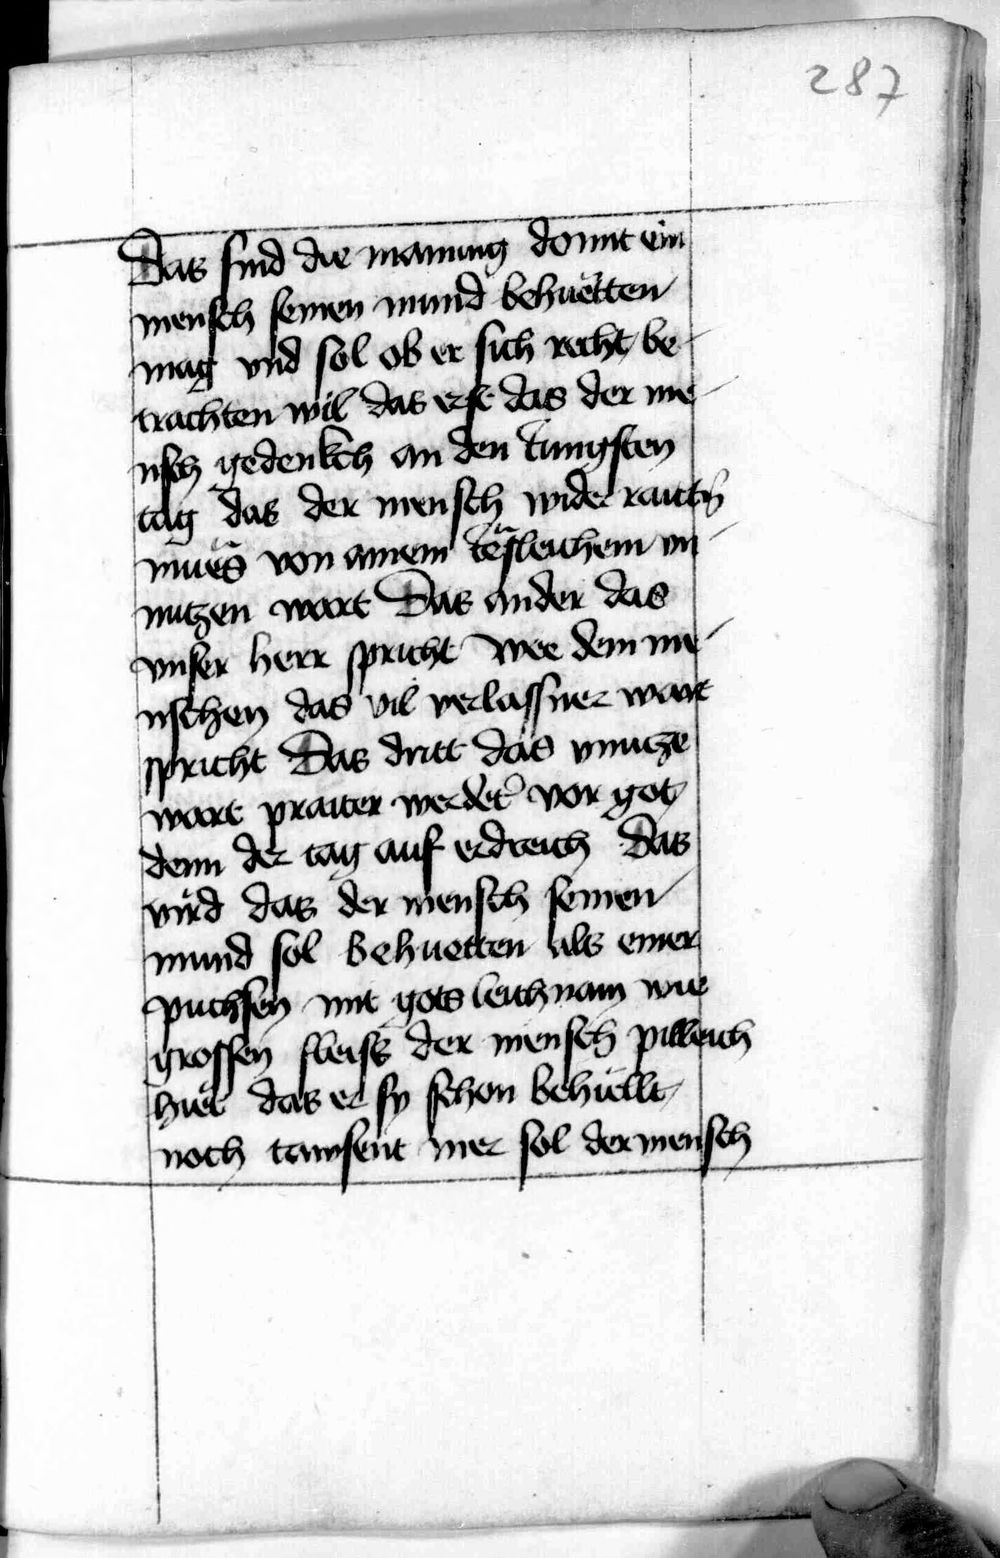 287
Das sind die manung domit ein
mensch seinen mund behuetten
mag vnd sol ob er sich recht be-
trachten wil das erst das der me-
nsch gedenkch an den iungsten
tag das der mensch wider raitten
mues von ainem iesleichem vn-
nutzen wort Das ander das
vnser herr spricht wee dem me-
nschen das vil verlassner wort
spricht Das dritt das vnnutze
wort praiter werdet vor got
denn der tag auf erdreich Das
vird das der mensch seinen
mund sol behuetten als einer
puchsen mit gots leichnam wie
grossen fleiss der mensch pilleich
hiet das er sy schon behuellt
noch tawsent mer sol der mensch